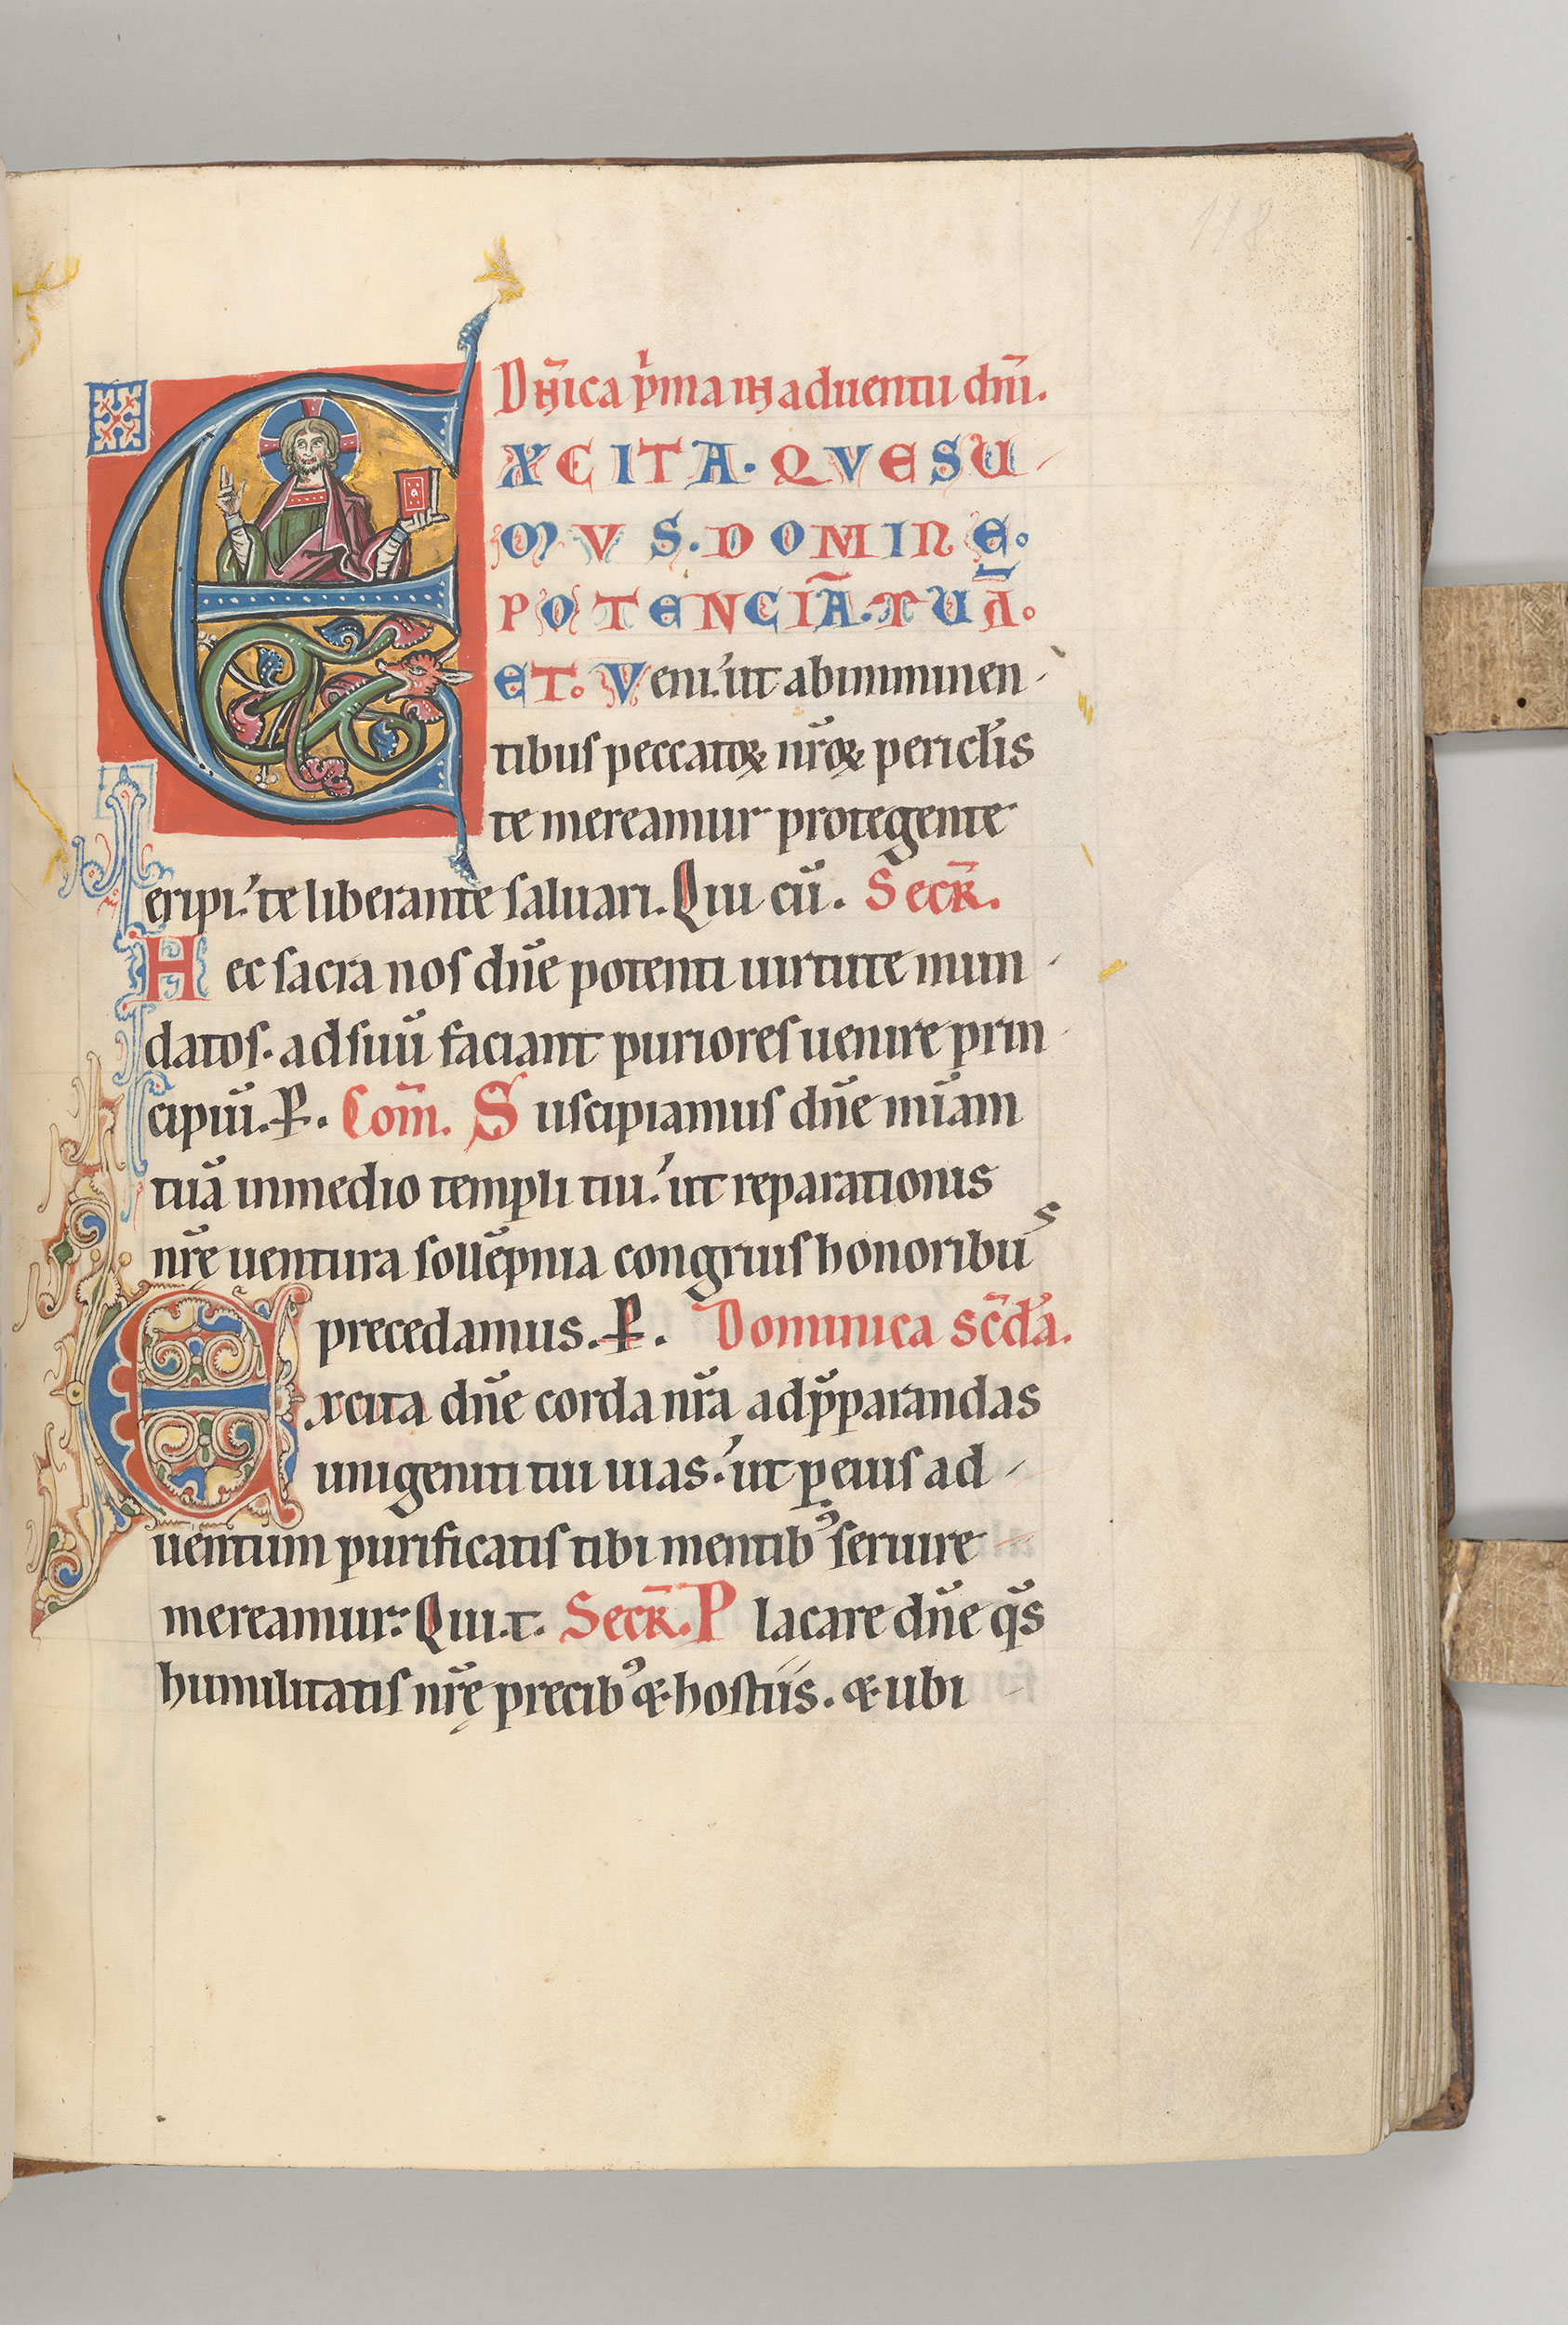 118
Dñica p̍ma in aduentu dñi.
EXCITA. QVESU
MVS. DOMINE.
POTENCIĀ. TUĀ.
ET. Veni. ut ab imminen
tibus peccatoꝝ nr̄oꝝ pericl̄is
te mereamur protegente
eripi. te liberante saluari. Qui cū. Secr̄.
Hec sacra nos dn̄e potenti uirtute mun
datos. ad suū faciant puriores uenire prin
cipiū. P. Com̄. Suscipiamus dn̄e mīam
tuā in medio templi tui. ut reparationis
nr̄ę uentura sollēpnia congruis honoribus
precedamus. P. Dominica sc̄da.
Excita dn̄e corda nr̄a ad p̄parandas
unigeniti tui uias. ut ꝑ eius ad
uentum purificatis tibi mentibꝰ seruire
mereamur. Qui.t. Secr̄. Placare dn̄e qs̄
humilitatis nr̄ę precibꝰ & hostiis. & ubi